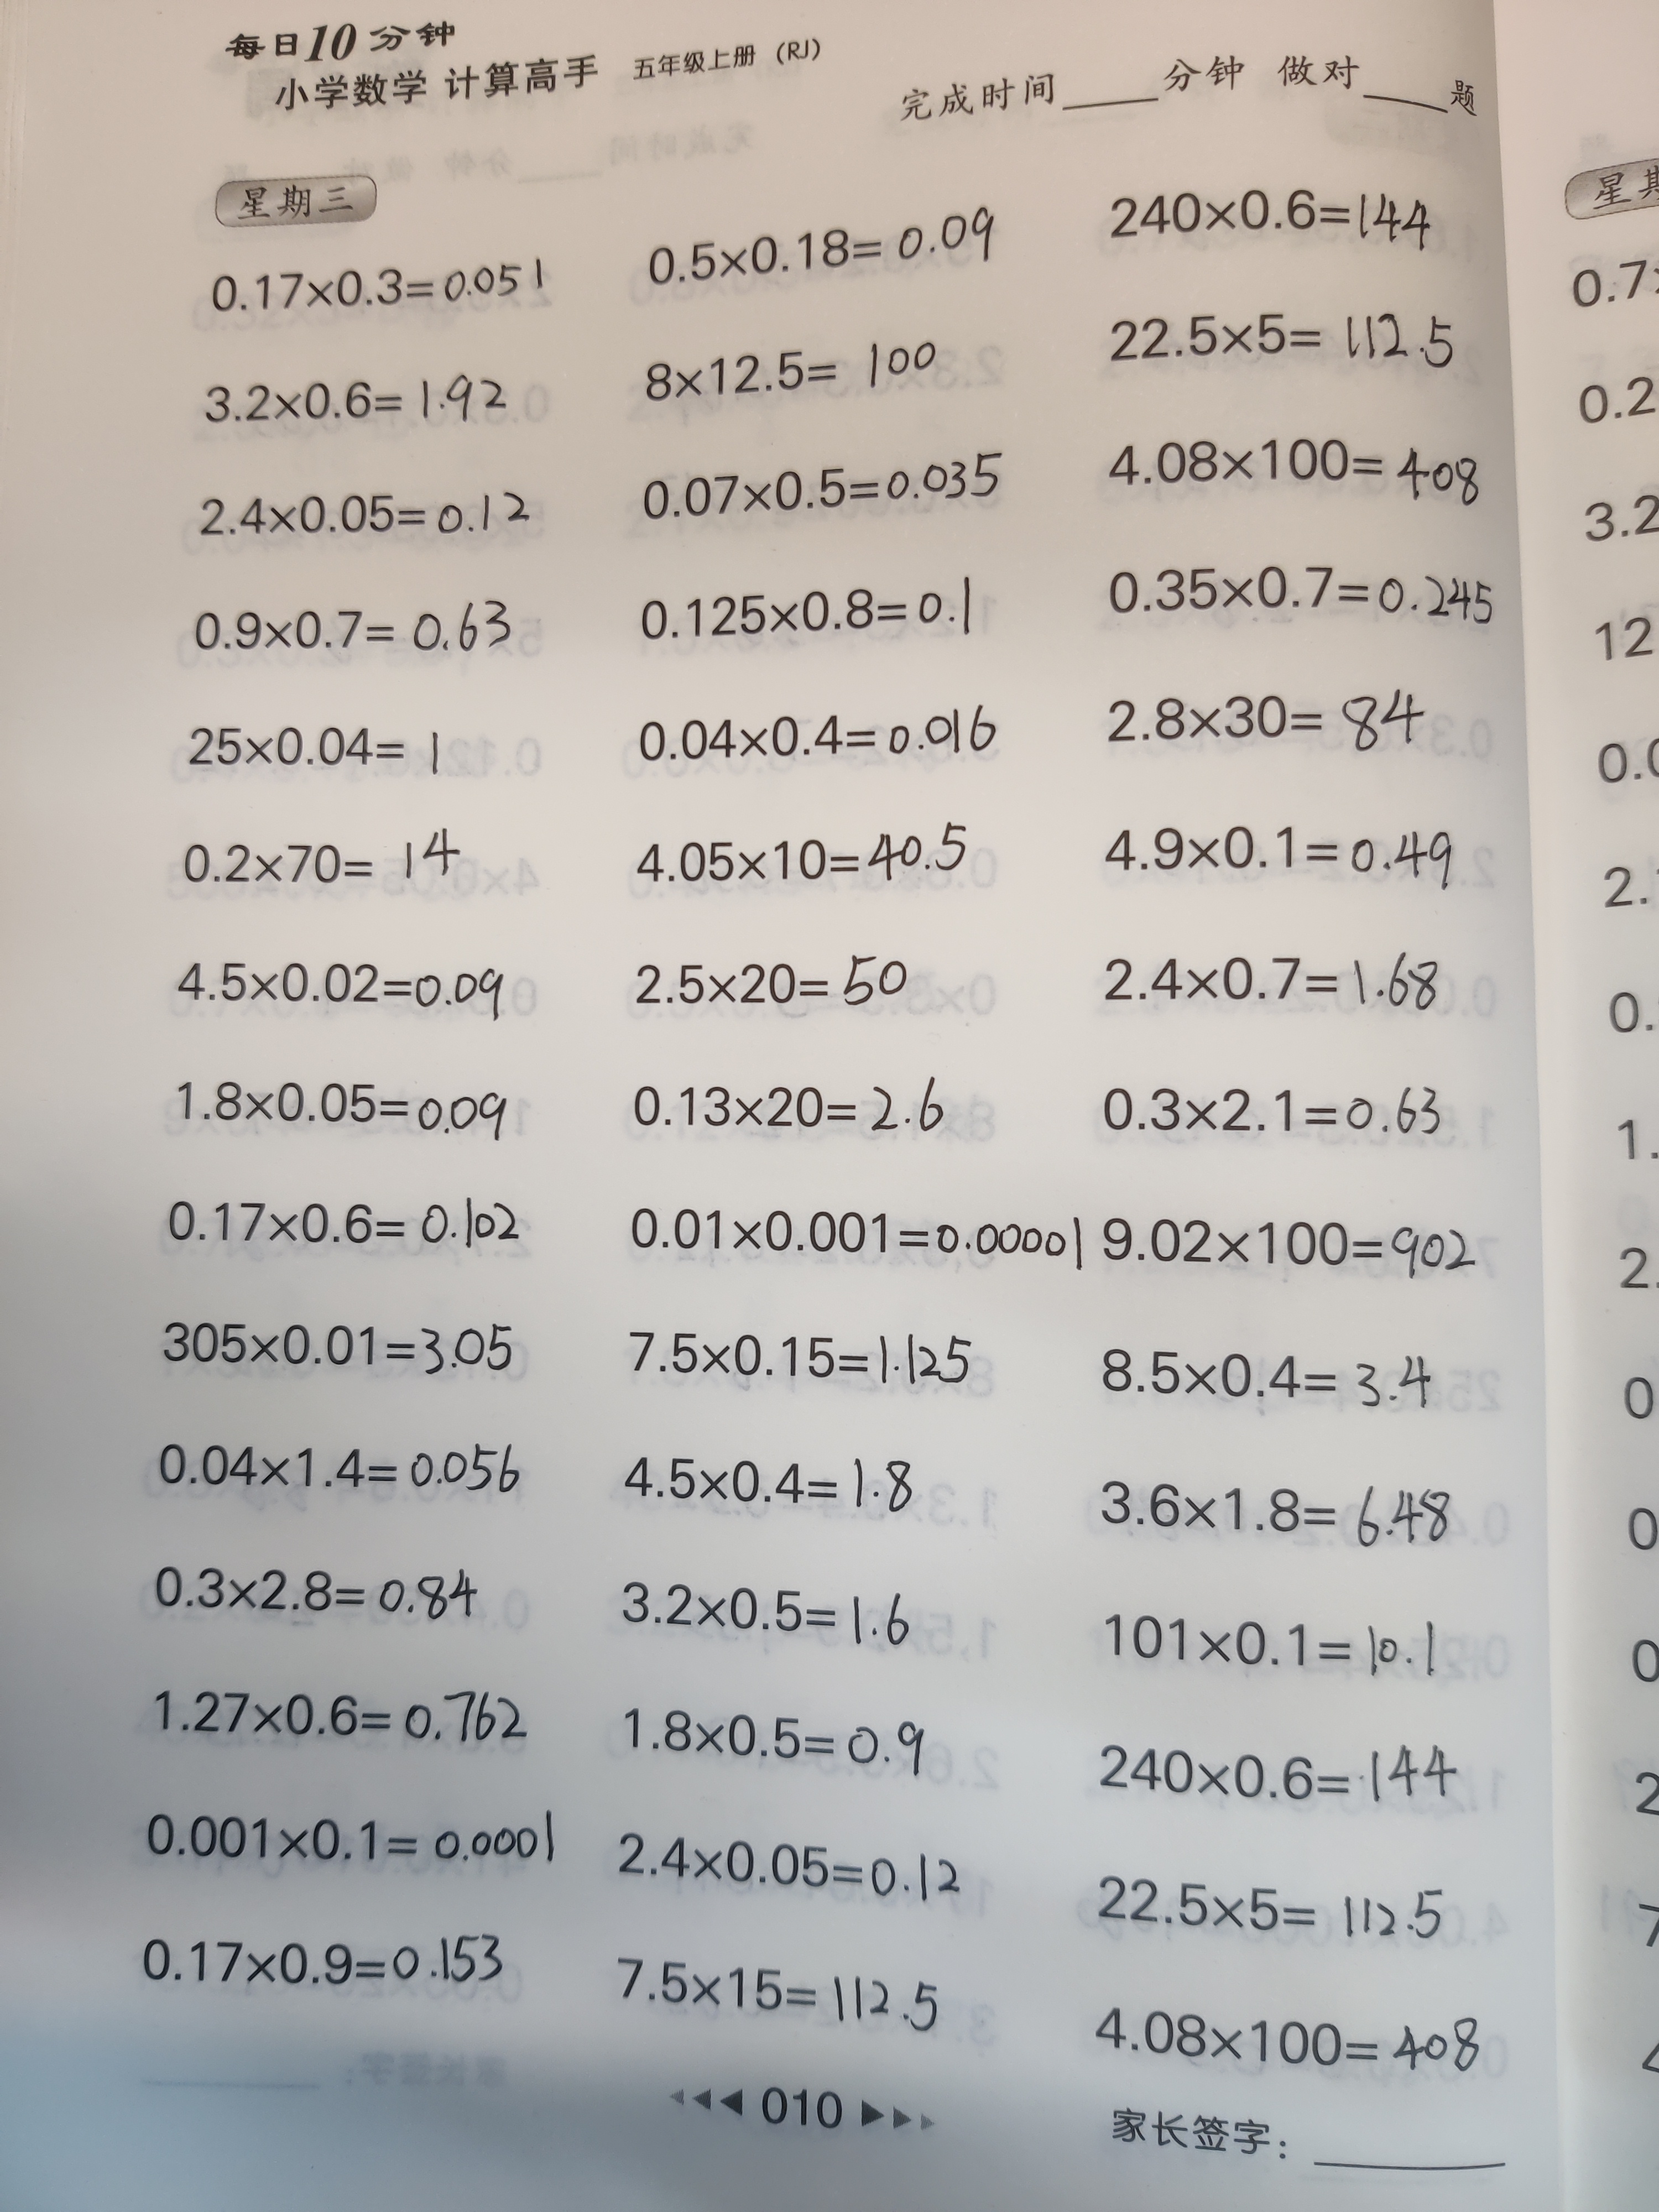 每日10分钟
小学数学 计算高手 五年级上册 (RJ)
完成时间_____分钟 做对____题
星期三
0.17×0.3=0.051
3.2×0.6=1.92
2.4×0.05=0.12
0.9×0.7=0.63
25×0.04=1
0.2×70=14
4.5×0.02=0.09
1.8×0.05=0.09
0.17×0.6=0.102
305×0.01=3.05
0.04×1.4=0.056
0.3×2.8=0.84
1.27×0.6=0.762
0.001×0.1=0.0001
0.17×0.9=0.153
0.5×0.18=0.09
8×12.5=100
0.07×0.5=0.035
0.125×0.8=0.1
0.04×0.4=0.016
4.05×10=40.5
2.5×20=50
0.13×20=2.6
0.01×0.001=0.00001
7.5×0.15=1.125
4.5×0.4=1.8
3.2×0.5=1.6
1.8×0.5=0.9
2.4×0.05=0.12
7.5×15=112.5
240×0.6=144
22.5×5=112.5
4.08×100=408
0.35×0.7=0.245
2.8×30=84
4.9×0.1=0.49
2.4×0.7=1.68
0.3×2.1=0.63
9.02×100=902
8.5×0.4=3.4
3.6×1.8=6.48
101×0.1=10.1
240×0.6=144
22.5×5=112.5
4.08×100=408
010
家长签字：________
星期
0.7
0.2
3.2
12
0.0
2.
0.
1.
2.
0
0
0
2
7